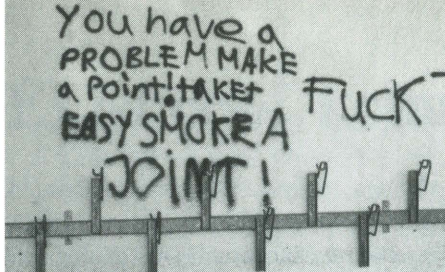 You have a
PROBLEM MAKE
a Point! take+
FUCK
EASY SMOKE A
JOINT!